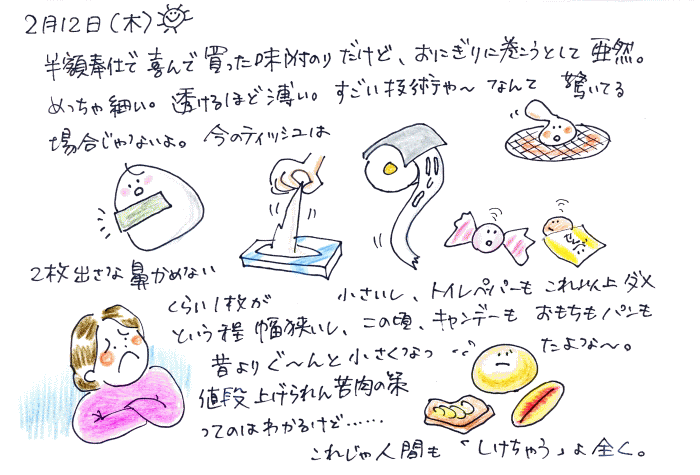 2月12日(木)
半額奉仕で喜んで買った味附のりだけど、おにぎりに巻こうとして唖然。
めっちゃ細い。透けるほど薄い。すごい技術やへなんて驚いてる
場合じゃないよ。今のティッシュは
2枚出さな鼻かめない
くらい1枚が小さいし、トイレペパーもこれ以上ダメ
という程幅狭いし、この頃、キャンデーもおもちもパンも
昔よりぐ〜んと小さくなったよな〜。
値段上げられん苦肉の策
ってのはわかるけど……
これじゃ人間も「しけちゃう」よ全く。